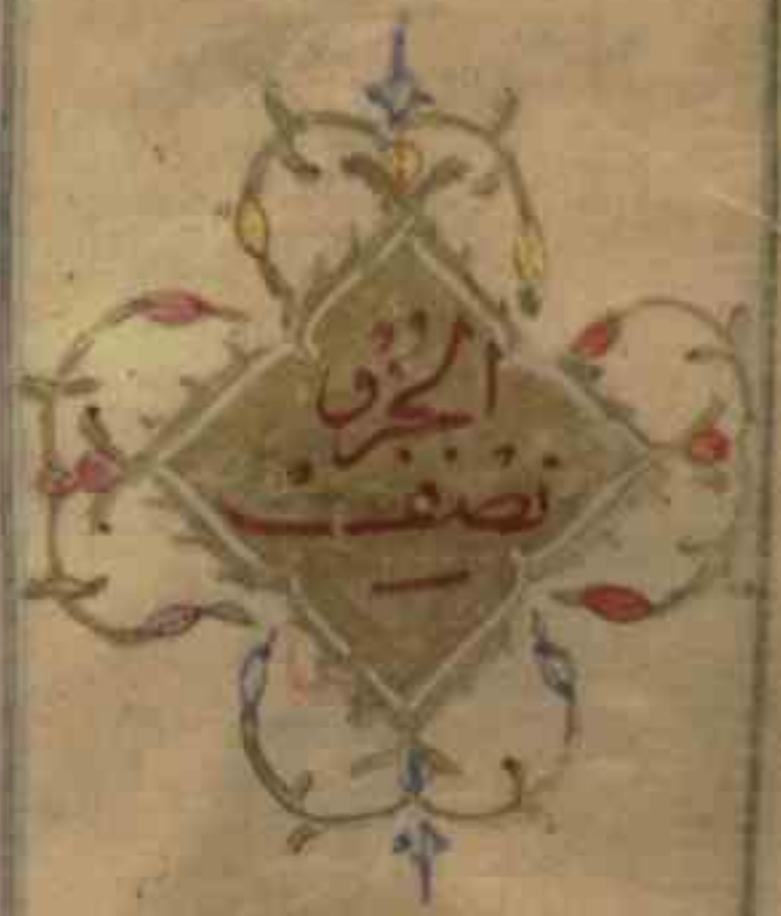 الجزو
نصف